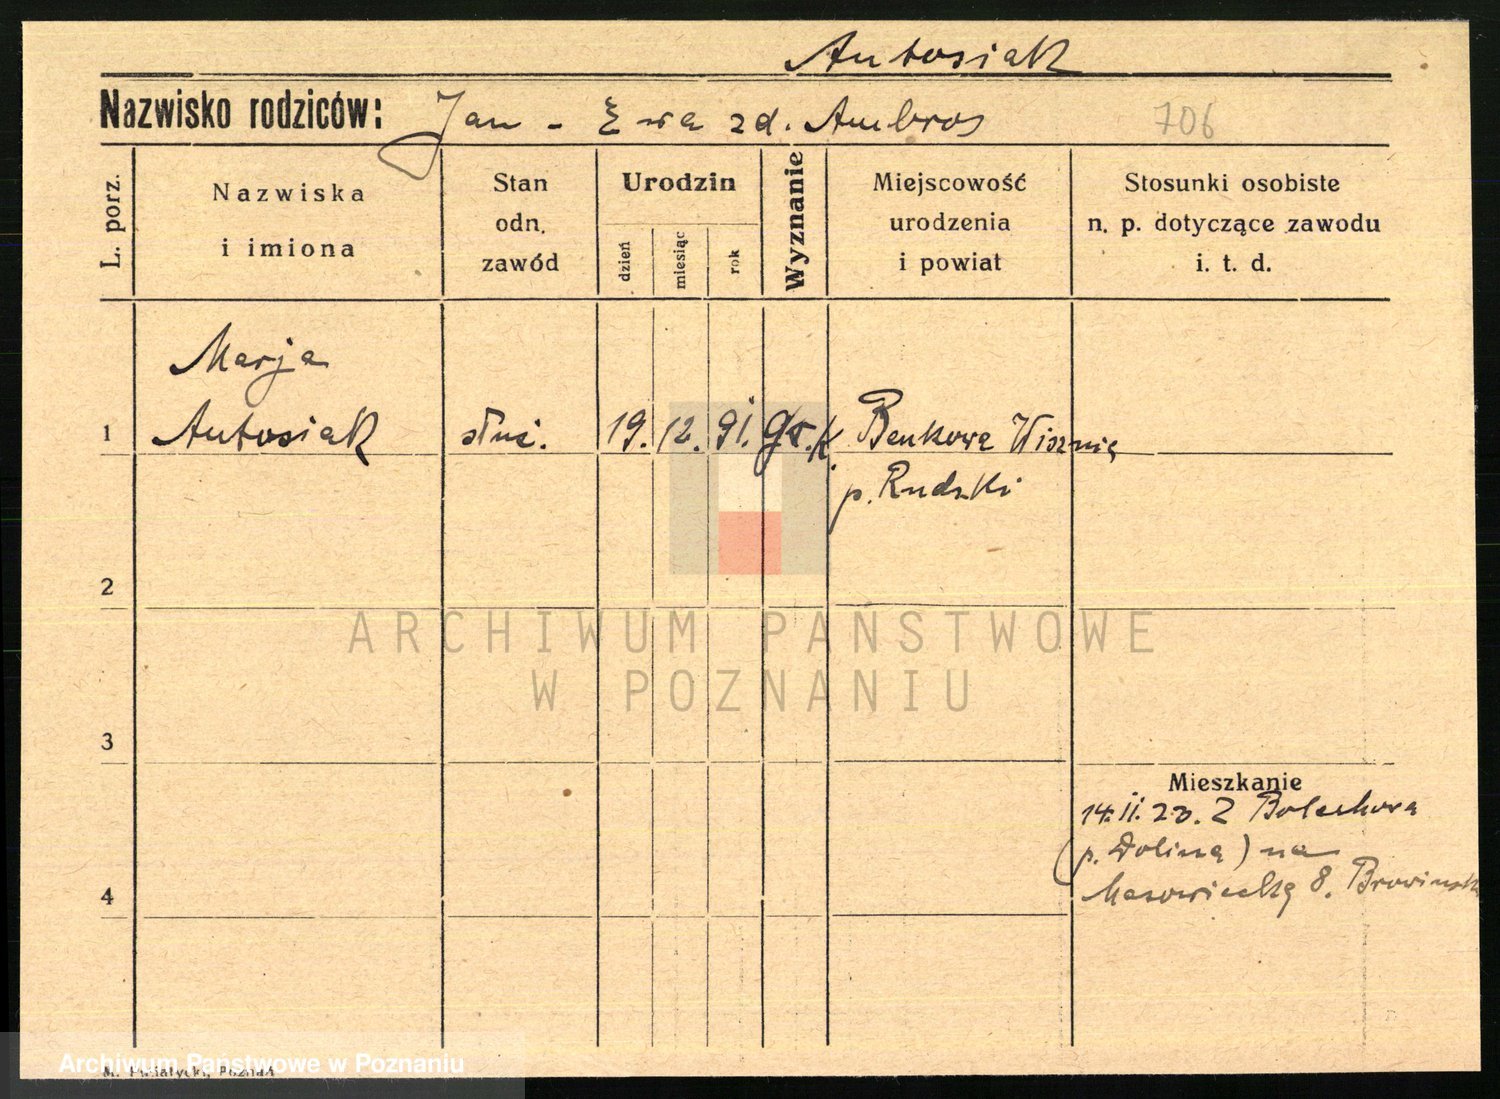 Antosiak
Nazwisko rodziców: Jan - Ewa zd. Ambros 706
L. porz.
Nazwiska
i imiona
Stan
odn.
zawód
Urodzin
dzień
miesiąc
rok
Wyznanie
Miejscowość
urodzenia
i powiat
Stosunki osobiste
n. p. dotyczące zawodu
i. t. d.
Marja
1 Antosiak służ. 19. 12. 91. gr. k. Benkowa Wisznia
p. Rudzki
2
ARCHIWUM PAŃSTWOWE
W POZNANIU
3
Mieszkanie
14.II.23. Z Bolechowa
(p. Dolina) na
4 Masowiecką 8. Browinsk
Archiwum Państwowe w Poznaniu
Poznań